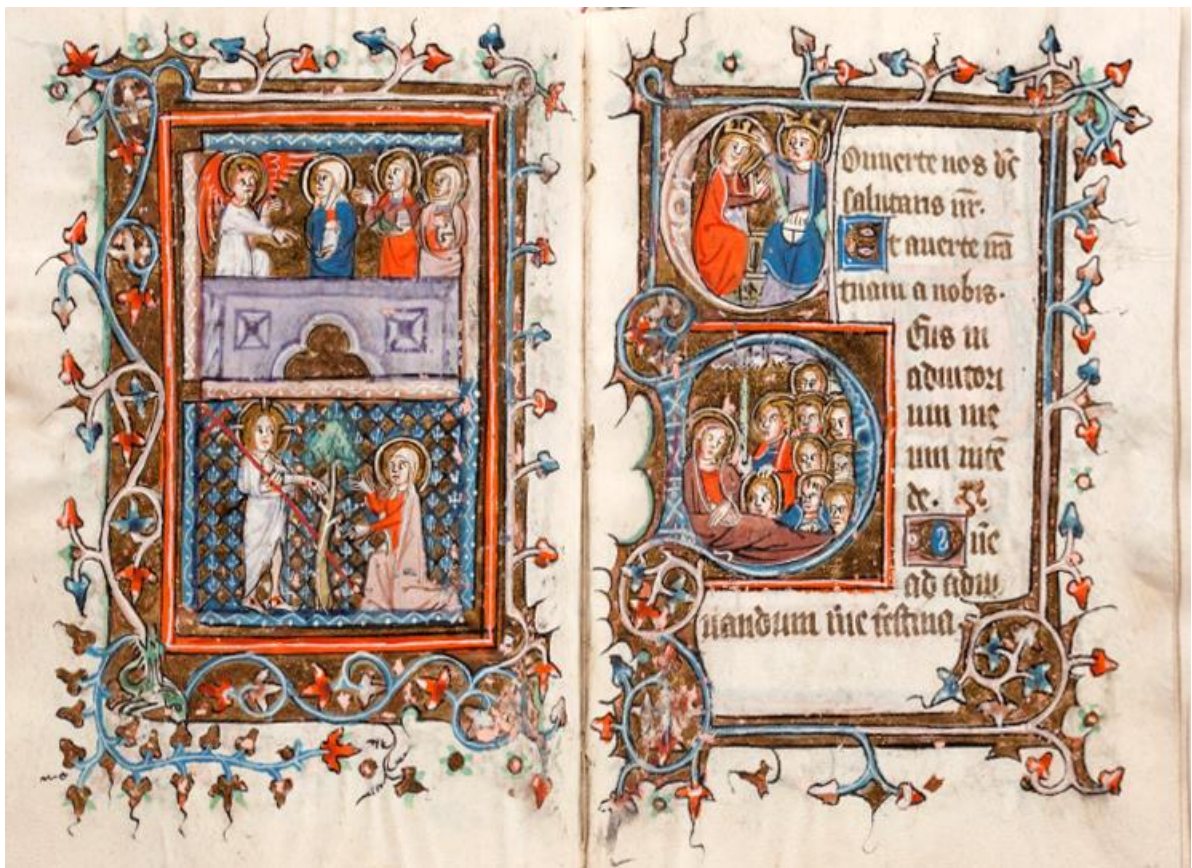 Conuerte nos dē
salutaris nr̄.
Et auerte irā
tuam a nobis.
Deus in
adiutori
um me
um intē
de.
Dn̄e
ad adiu
uandum me festina